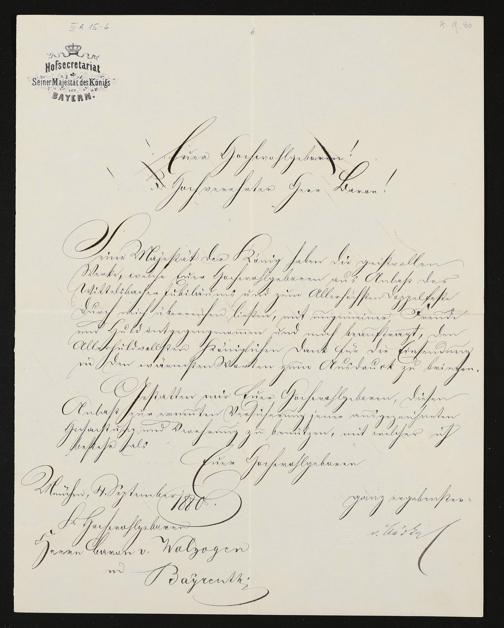 III A 15-6
4. 9. 80
6
Hofsecretariat
Seiner Majestät des Königs
von
BAYERN.
Euer Hochwohlgeboren!
Hochverehrter Herr Baron!
Seine Majestät der König haben die geistvollen
Werke, welche Euer Hochwohlgeboren aus Anlaß des
Wittelsbacher Jubiläums und zum Allerhöchsten Doppelfeste
durch mich überreichen ließen, mit ungemeiner Freude
und Huld entgegengenommen und mich beauftragt, den
Allerhuldvollsten Königlichen Dank für die Einsendung
in den wärmsten Worten zum Ausdruck zu bringen.
Gestatten mir Euer Hochwohlgeboren, diesen
Anlaß zur erneuten Versicherung jener ausgezeichneten
Hochachtung und Verehrung zu benutzen, mit welcher ich
bestehe als
Euer Hochwohlgeboren
München, 4. September 1880.
ganz ergebenster
Sr. Hochwohlgeboren
Herrn Baron v. Wolzogen
in
Bayreuth